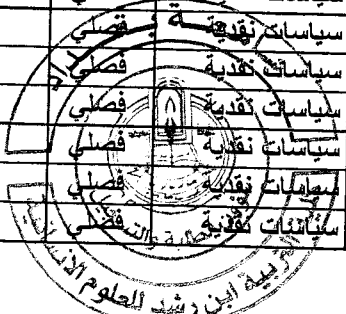 سياسات نقدية فصلي
سياسات نقدية فصلي
سياسات نقدية فصلي
سياسات نقدية فصلي
سياسات نقدية فصلي
سياسات نقدية فصلي
التربية ابن رشد للعلوم الانسانية